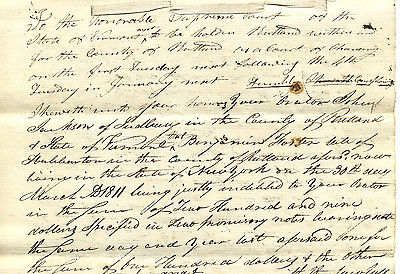 To the Honorable Supreme Court of the
State of Vermont next to be holden Rutland within and
for the County of Rutland as a Court of Chancery
on the first Tuesday next following the 4th
Tuesday in January next Humbly
Sheweth unto your honors Your Orator John
Jackson of Sudbury in the County of Rutland
& State of Vermont that Benjamin Foster late of
Hubbardton in the County of Rutland afores. now
in the State of New York on the 30th day
March AD 1811 being justly indebted to Your Orator
in the sum of Two Hundred and nine
dollars specified in two promisory notes bearing date
the same day and Year last aforesaid one for
the sum of One Hundred dollars & the other